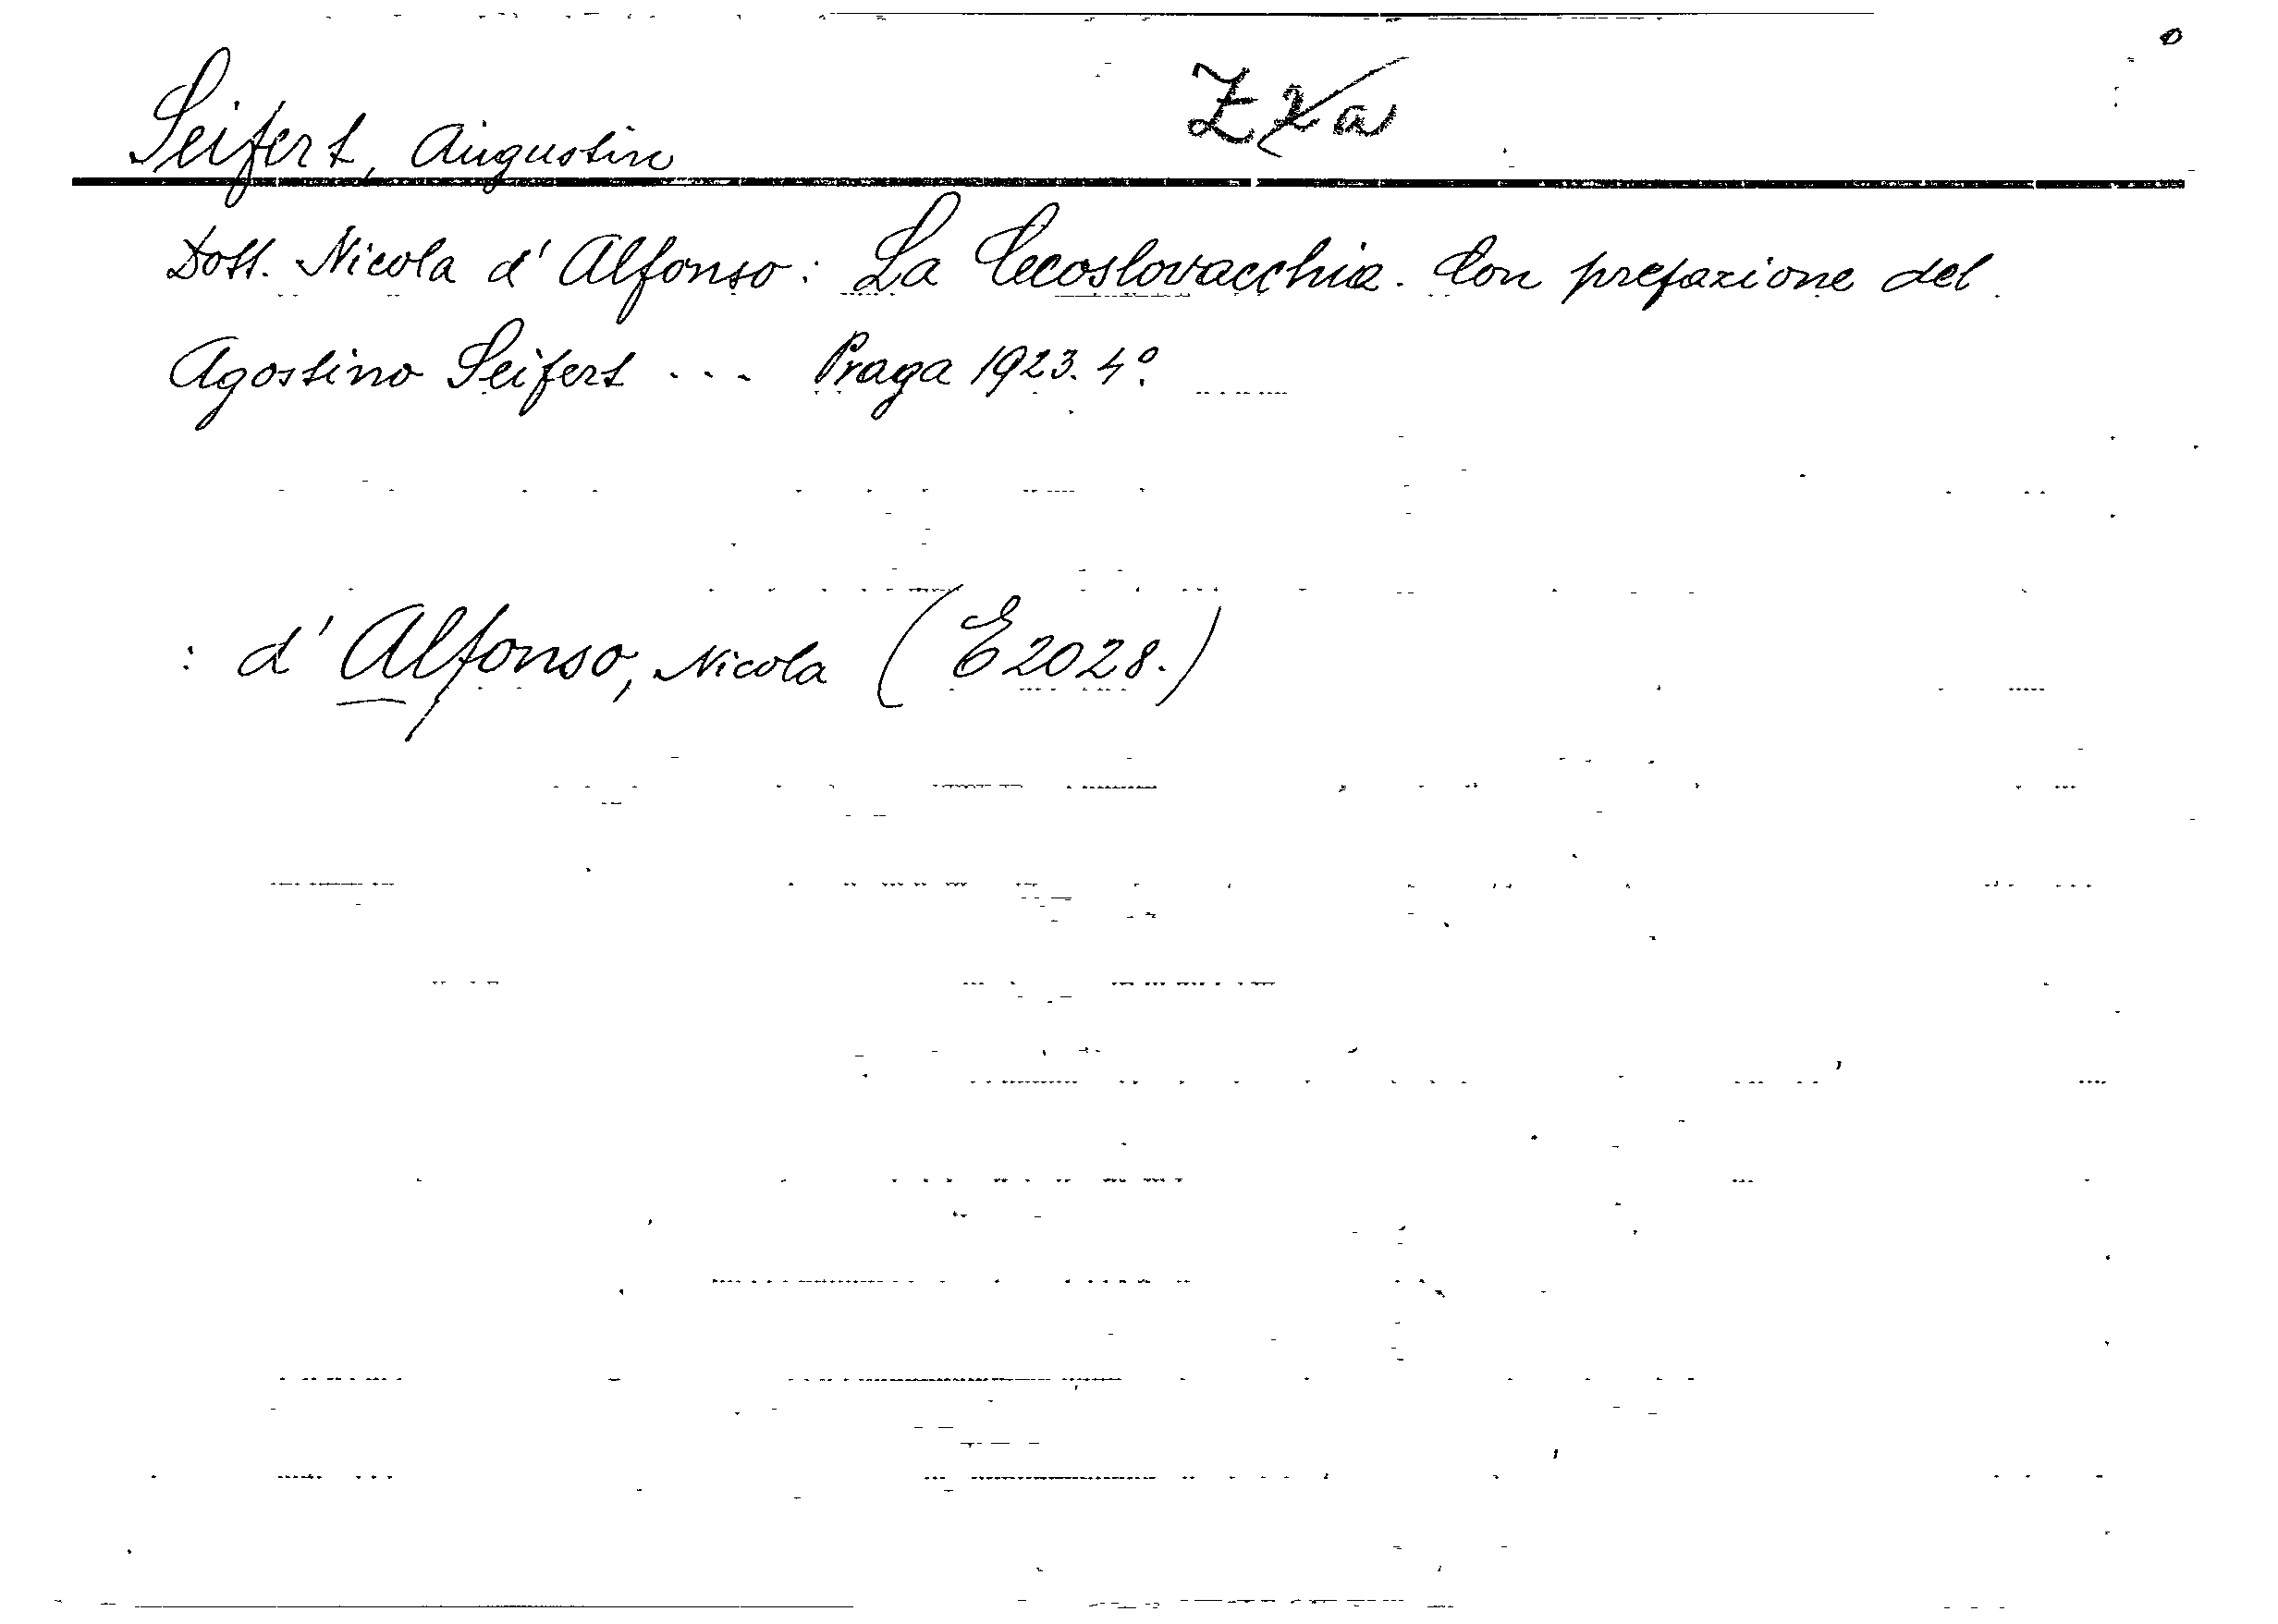 Seifert, Augustin
Dott. Nicola d'Alfonso: La Cecoslovacchia. Con prefazione del
Agostino Seifert ... Praga 1923. 4º.
: d'Alfonso, Nicola (E2028.)